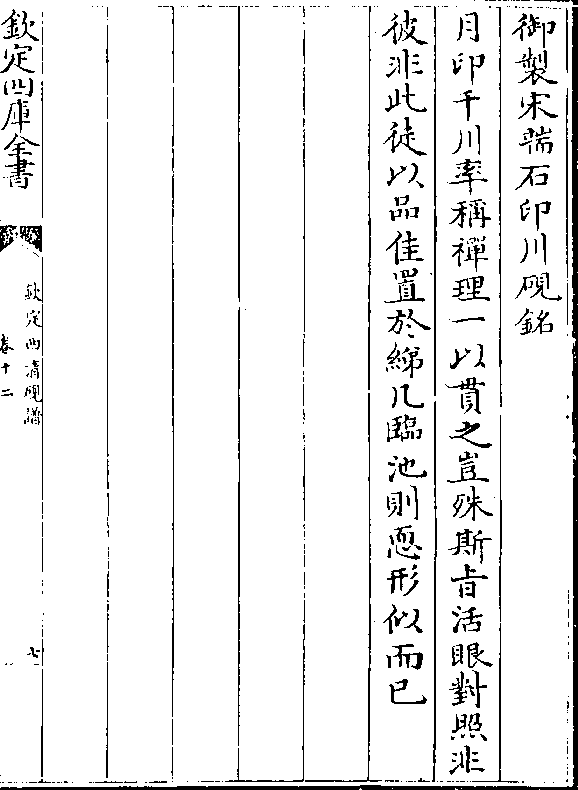 御製宋端石印川硯銘
月印千川率稱禪理一以貫之豈殊斯㫖活眼對照非
彼非此徒以品佳置於綈几臨池則恧形似而已
欽定四庫全書
欽定西清硯譜
卷十二
七